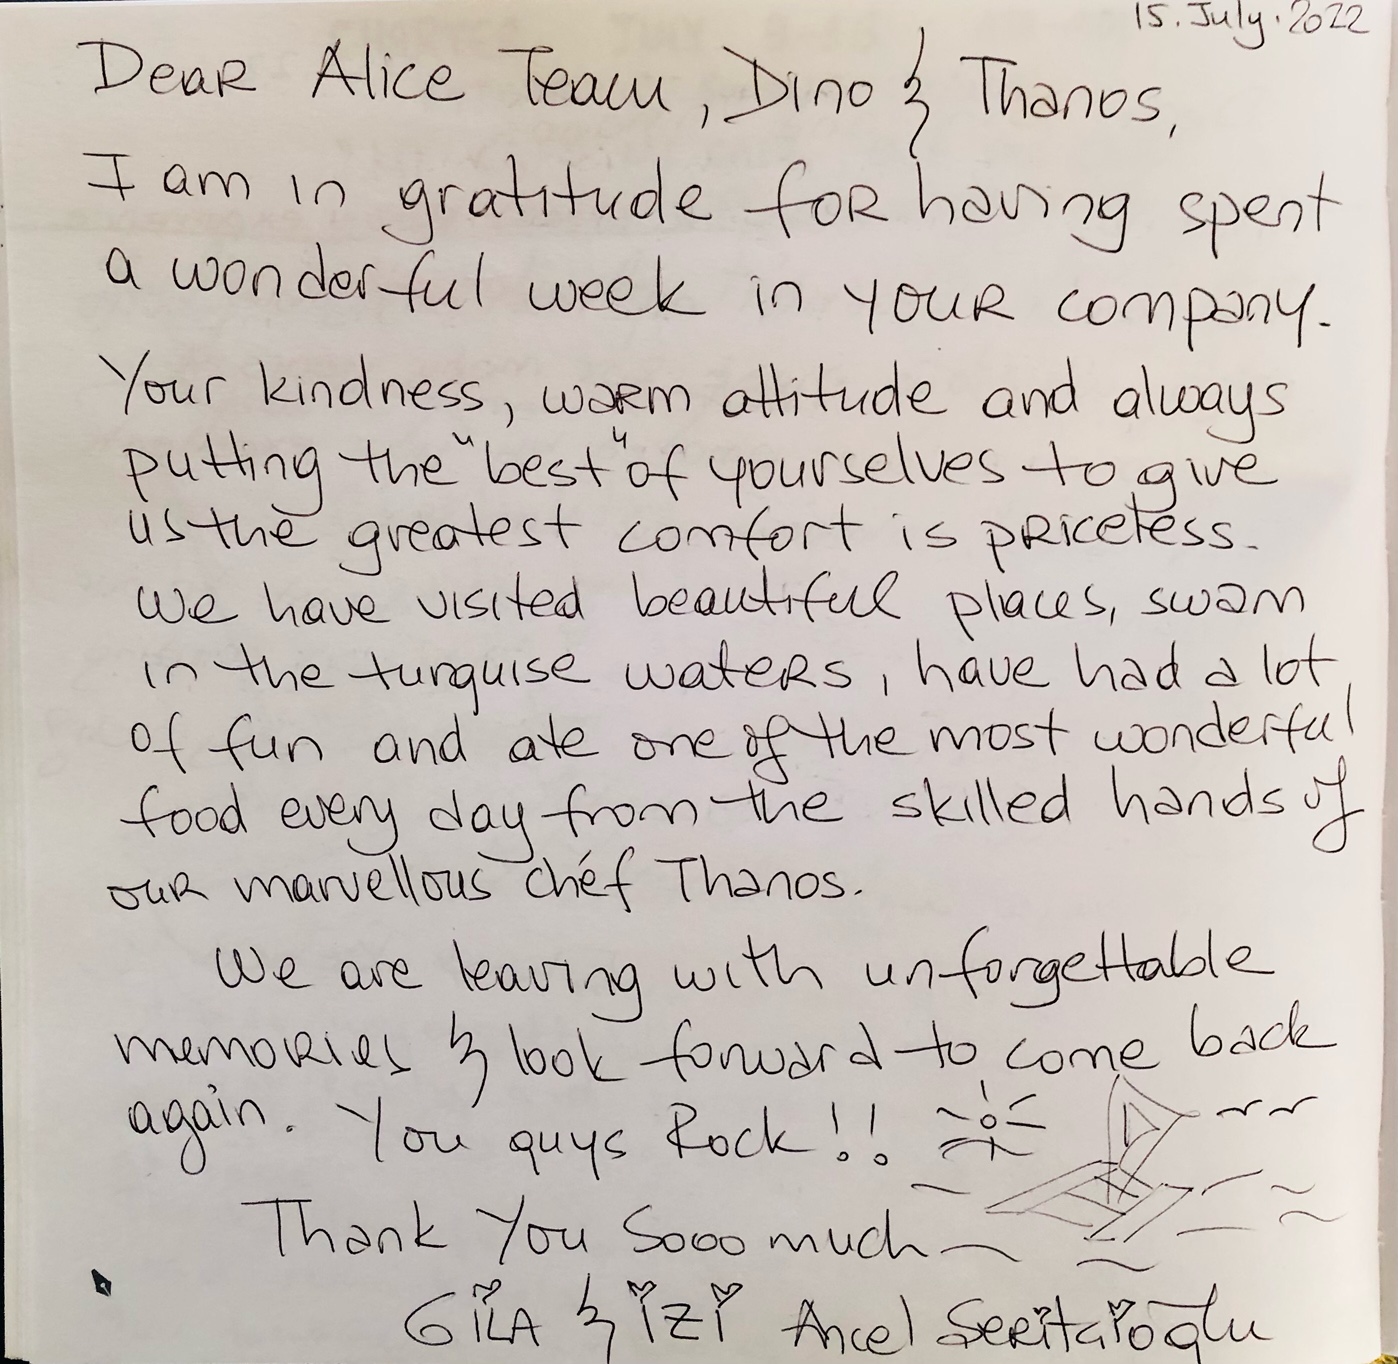 15. July. 2022
Dear Alice Team, Dino & Thanos,
I am in gratitude for having spent
a wonderful week in your company.
Your kindness, warm attitude and always
putting the "best" of yourselves to give
us the greatest comfort is priceless.
We have visited beautiful places, swam
in the turquise waters, have had a lot
of fun and ate one of the most wonderful
food every day from the skilled hands of
our marvellous chéf Thanos.
We are leaving with unforgettable
memories & look forward to come back
again. You guys Rock!!
Thank You Sooo much
GİLA & İZİ Ancel